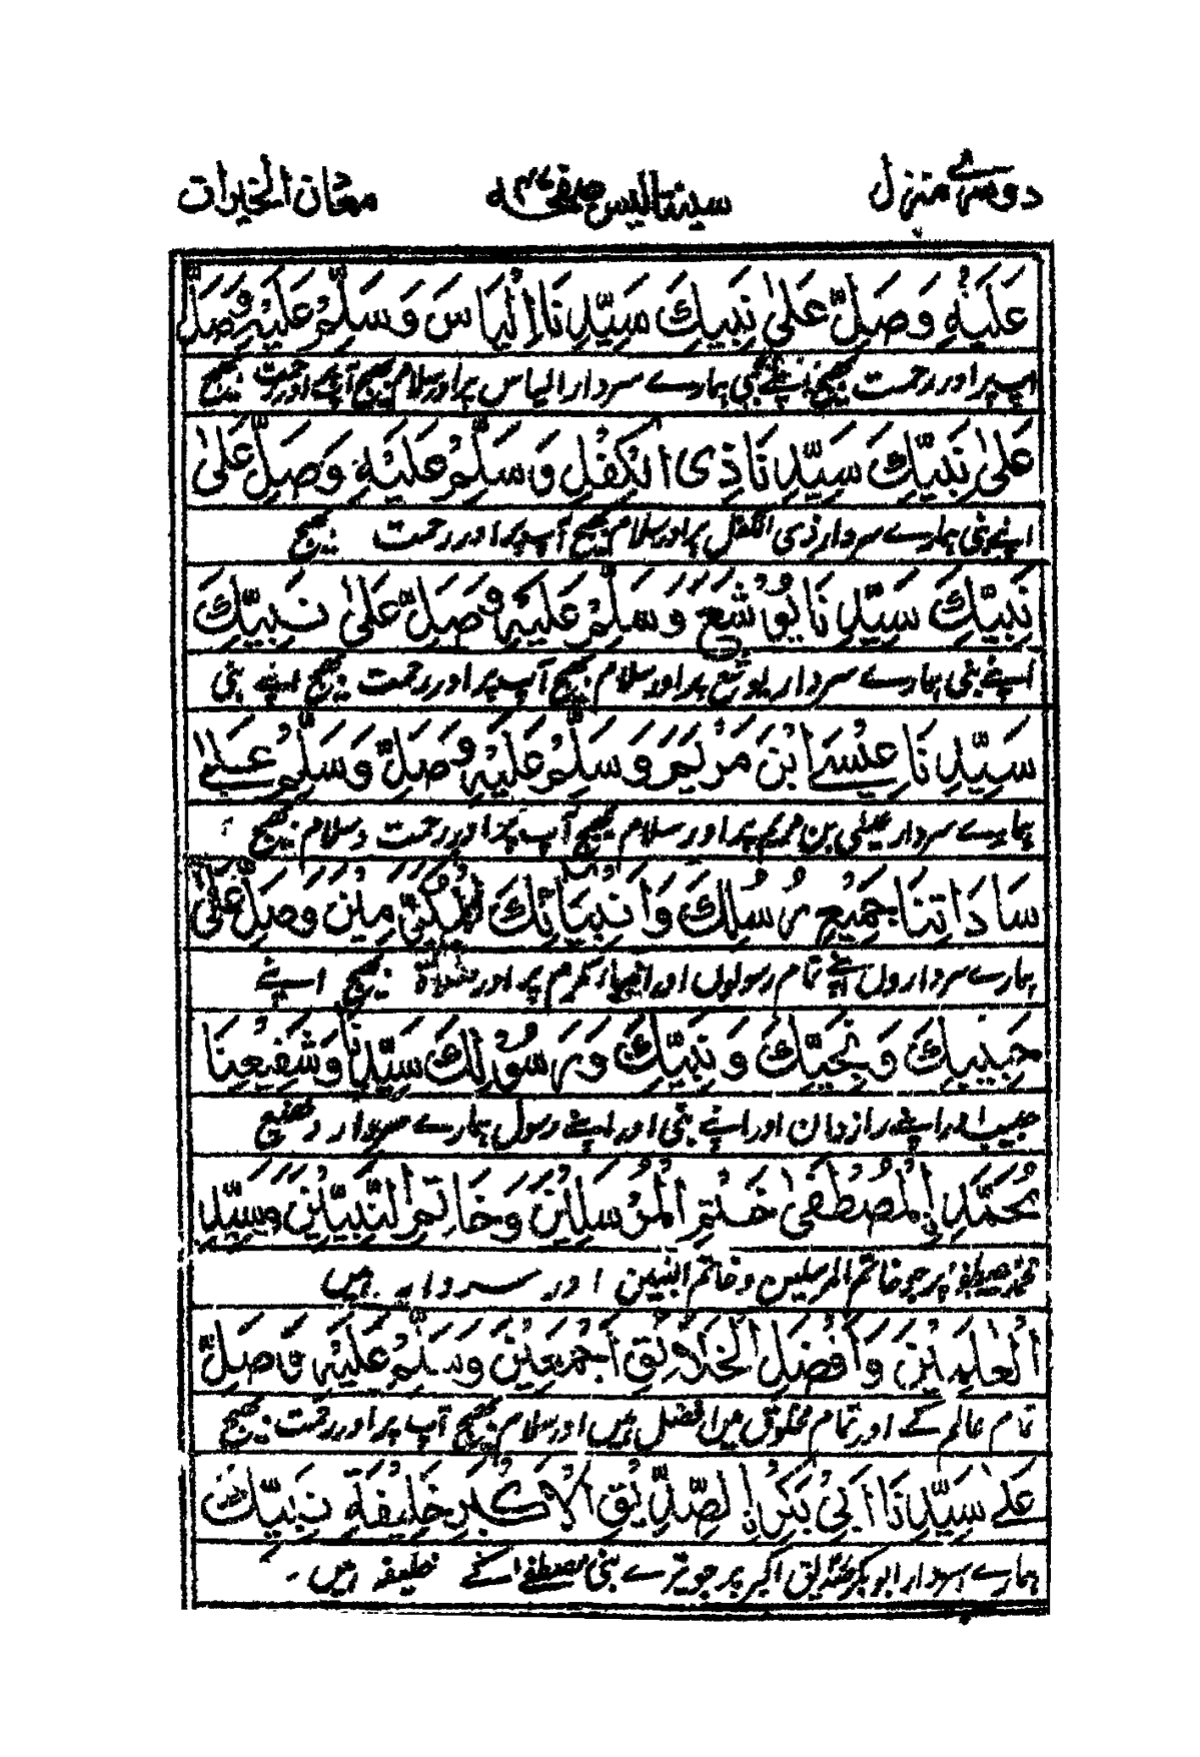 دوسرے منزل سینتالیس صفحہ ۴۷ معان الخیرات
عَلَیْهِ وَصَلِّ عَلیٰ نَبِیِّكَ سَیِّدِنَا اِلْیَاسَ وَسَلِّمْ عَلَیْهِ وَصَلِّ
آپ پر اور رحمت بھیج اپنے نبی ہمارے سردار الیاس پر اور سلام بھیج آپ پر اور رحمت بھیج
عَلیٰ نَبِیِّكَ سَیِّدِنَا ذِی الْكِفْلِ وَسَلِّمْ عَلَیْهِ وَصَلِّ عَلیٰ
اپنے نبی ہمارے سردار ذی الکفل پر اور سلام بھیج آپ پر اور رحمت بھیج
نَبِیِّكَ سَیِّدِنَا یُوْشَعَ وَسَلِّمْ عَلَیْهِ وَصَلِّ عَلیٰ نَبِیِّكَ
اپنے نبی ہمارے سردار یوشع پر اور سلام بھیج آپ پر اور رحمت بھیج اپنے نبی
سَیِّدِنَا عِیْسَے ابْنَ مَرْیَمَ وَسَلِّمْ عَلَیْهِ وَصَلِّ وَسَلِّمْ عَلٰے
ہمارے سردار عیسٰی بن مریم پر اور سلام بھیج آپ پر اور رحمت و سلام بھیج
سَادَاتِنَا جَمِیْعِ رُسُلِكَ وَاَنْبِیَائِكَ الْمُكَرَّمِیْنَ وَصَلِّ عَلیٰ
ہمارے سرداروں اپنے تمام رسولوں اور انبیاء مکرم پر اور صلوٰۃ بھیج اپنے
حَبِیْبِكَ وَنَجِیِّكَ وَنَبِیِّكَ وَرَسُوْلِكَ سَیِّدِنَا وَشَفِیْعِنَا
حبیب اور اپنے رازدان اور اپنے نبی اور اپنے رسول ہمارے سردار و شفیع
مُحَمَّدِ نِالْمُصْطَفیٰ خَتْمِ الْمُرْسَلِیْنَ وَخَاتِمِ النَّبِیِّیْنَ وَسَیِّدِ
محمد مصطفیٰ پر جو خاتم المرسلین و خاتم النبیین اور سردار ہیں
الْعٰلَمِیْنَ وَاَفْضَلِ الْخَلَائِقِ اَجْمَعِیْنَ وَسَلِّمْ عَلَیْهِ وَصَلِّ
تمام عالم کے اور تمام مخلوق میں افضل ہیں اور سلام بھیج آپ پر اور رحمت بھیج
عَلٰے سَیِّدِنَا اَبِیْ بَكْرِ نِالصِّدِّیْقِ الْاَكْبَرِ خَلِیْفَةِ نَبِیِّكَ
ہمارے سردار ابوبکر صدیق اکبر پر جو تیرے نبی مصطفےٰ کے خلیفہ ہیں۔